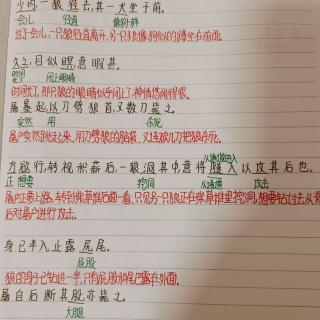 少时,一狼径去,其一犬坐于前。
一会儿 径直 像狗一样
过了一会儿,一只狼径直离开,另一只狼像狗似的蹲坐在前面。
久之,目似瞑,意暇甚。
时间长了 闭上眼睛
时间长了,那只狼的眼睛似乎闭上了,神情悠闲得很。
屠暴起,以刀劈狼首,又数刀毙之。
突然 用 杀死
屠户突然跳起来,用刀劈狼的脑袋,又连砍几刀把狼杀死。
方欲行,转视积薪后,一狼洞其中,意将隧入以攻其后也。
从通道进入
正 想要 挖洞 从通道 攻击
屠户正要上路,转到柴草堆后面一看,只见另一只狼正在柴草堆里挖洞,想要钻过去从背
后对屠户进行攻击。
身已半入,止露尻尾。
屁股
狼的身子已钻进一半,只有屁股和尾巴露在外面。
屠自后断其股,亦毙之。
大腿